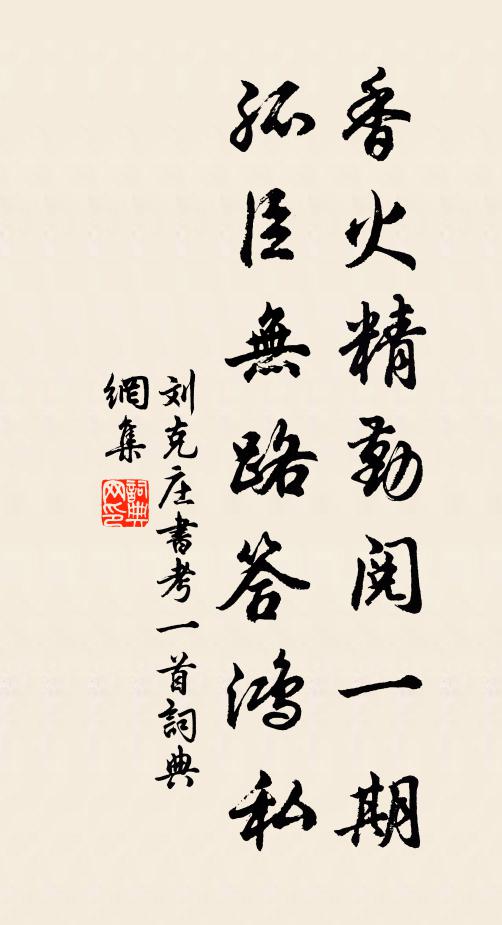 香火精勤閱一期
孤臣無路答鴻私
刘克庄書考一首詞典
網集
詞典
网印